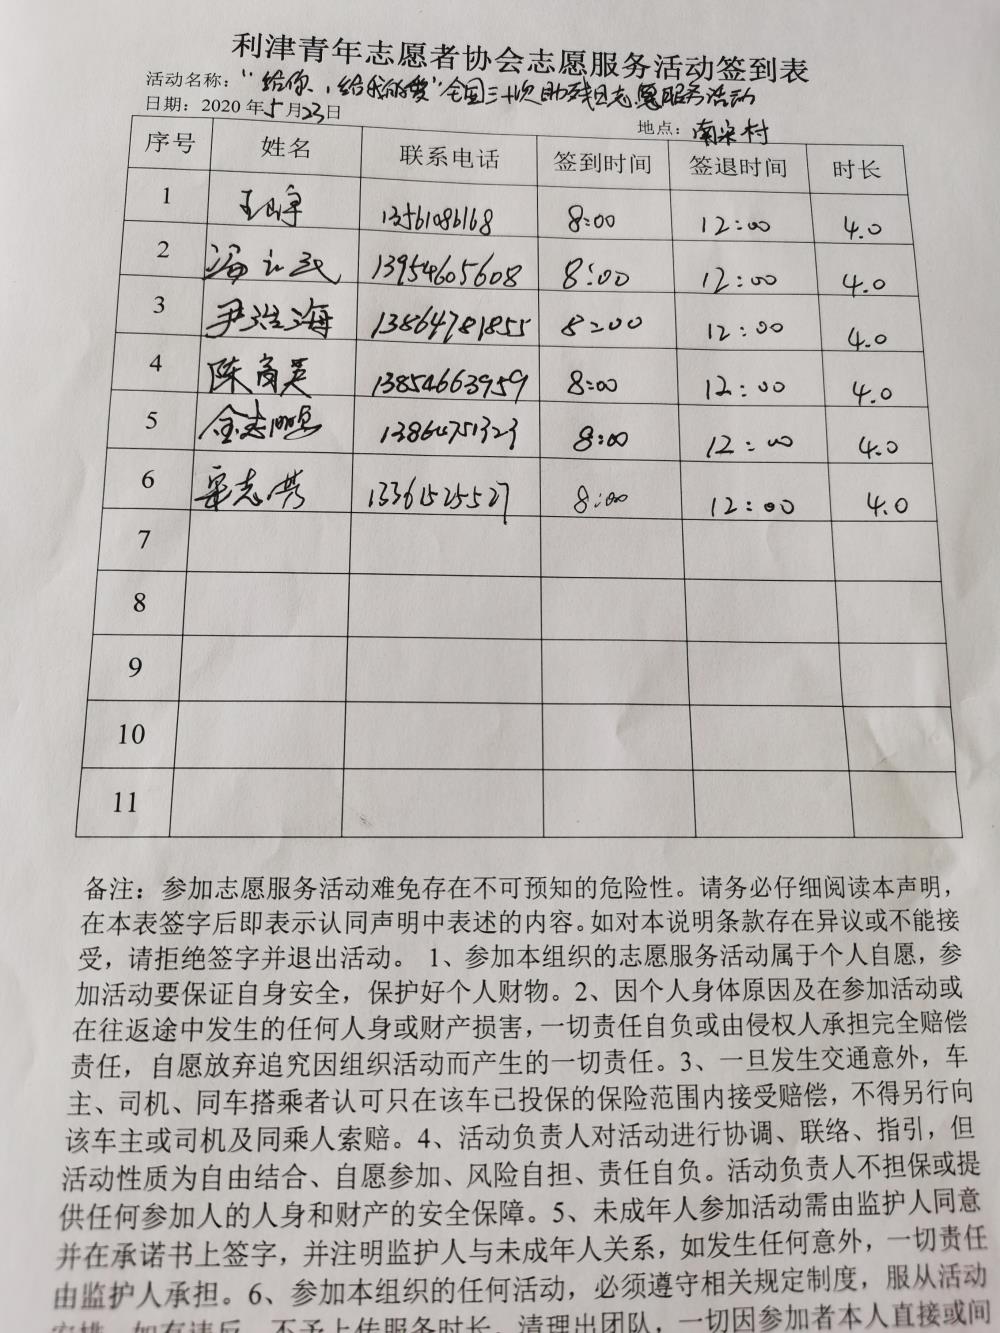 利津青年志愿者协会志愿服务活动签到表
活动名称："给你，给我的爱"全国三十次助残日志愿服务活动
日期：2020年5月23日
地点：南宋村
序号 姓名 联系电话 签到时间 签退时间 时长
1 13561086168 8:00 12:00 4.0
2 13954605608 8:00 12:00 4.0
3 尹浩海 13864781855 8:00 12:00 4.0
4 陈商英 13854663959 8:00 12:00 4.0
5 13864751323 8:00 12:00 4.0
6 13361525527 8:00 12:00 4.0
7
8
9
10
11
备注：参加志愿服务活动难免存在不可预知的危险性。请务必仔细阅读本声明，
在本表签字后即表示认同声明中表述的内容。如对本说明条款存在异议或不能接
受，请拒绝签字并退出活动。 1、参加本组织的志愿服务活动属于个人自愿，参
加活动要保证自身安全，保护好个人财物。2、因个人身体原因及在参加活动或
在往返途中发生的任何人身或财产损害，一切责任自负或由侵权人承担完全赔偿
责任，自愿放弃追究因组织活动而产生的一切责任。3、一旦发生交通意外，车
主、司机、同车搭乘者认可只在该车已投保的保险范围内接受赔偿，不得另行向
该车主或司机及同乘人索赔。4、活动负责人对活动进行协调、联络、指引，但
活动性质为自由结合、自愿参加、风险自担、责任自负。活动负责人不担保或提
供任何参加人的人身和财产的安全保障。5、未成年人参加活动需由监护人同意
并在承诺书上签字，并注明监护人与未成年人关系，如发生任何意外，一切责任
由监护人承担。6、参加本组织的任何活动，必须遵守相关规定制度，服从活动
安排，如有违反，不予上传服务时长，清理出团队，一切因参加者本人直接或间